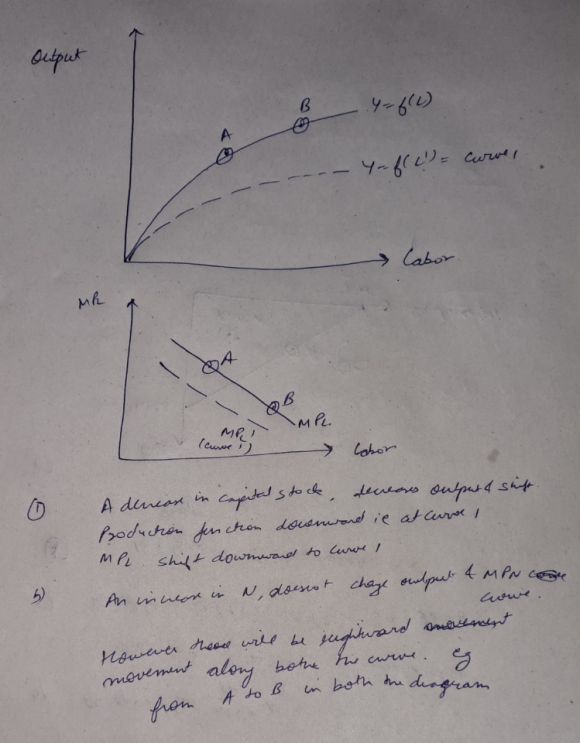 Output
B
A
Y = f(L)
Y = f(L') = curve 1
Labor
MPL
A
B
MPL
MPL'
(curve 1)
Labor
① A decrease in capital stock, decreases output & shift
Production function downward ie at curve 1
MPL shift downward to curve 1
b) An increase in N, doesnot chage output & MPN
curve.
However there will be rightward
movement along both the curve. eg
from A to B in both the diagram